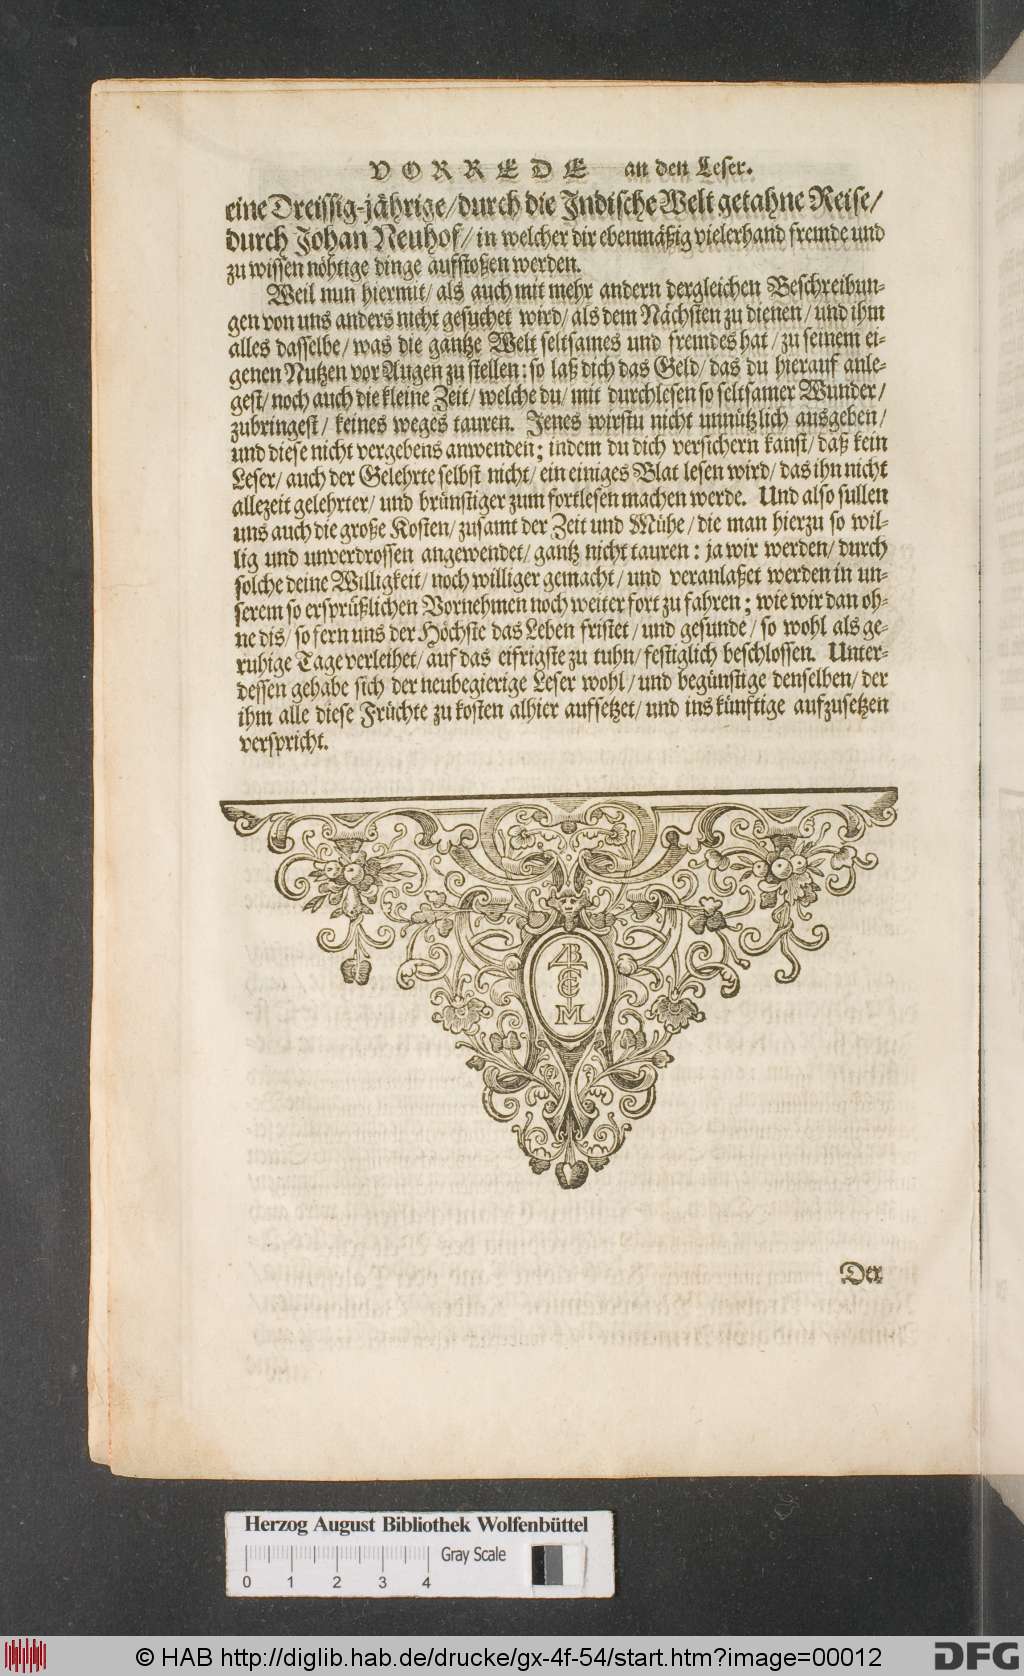 VORREDE an den Leser.
eine Dreissig-jährige/durch die Indische Welt getahne Reise/
durch Johan Neuhof/ in welcher dir ebenmäßig vielerhand fremde und
zu wissen nöhtige dinge aufstoßen werden.
Weil nun hiermit/ als auch mit mehr andern dergleichen Beschreibun-
gen von uns anders nicht gesuchet wird/ als dem Nächsten zu dienen/ und ihm
alles dasselbe/ was die gantze Welt seltsames und fremdes hat/ zu seinem ei-
genen Nutzen vor Augen zu stellen: so laß dich das Geld/ das du hierauf anle-
gest/ noch auch die kleine Zeit/ welche du/ mit durchlesen so seltsamer Wunder/
zubringest/ keines weges tauren. Jenes wirstu nicht unnützlich ausgeben/
und diese nicht vergebens anwenden; indem du dich versichern kanst/ daß kein
Leser/ auch der Gelehrte selbst nicht/ ein einiges Blat lesen wird/ das ihn nicht
allezeit gelehrter/ und brünstiger zum fortlesen machen werde. Und also sullen
uns auch die große Kosten/ zusamt der Zeit und Mühe/ die man hierzu so wil-
lig und unverdrossen angewendet/ gantz nicht tauren: ja wir werden/ durch
solche deine Willigkeit/ noch williger gemacht/ und veranlaßet werden in un-
serem so ersprüßlichen Vornehmen noch weiter fort zu fahren; wie wir dan oh-
ne dis/ so fern uns der Höchste das Leben fristet/ und gesunde/ so wohl als ge-
ruhige Tage verleihet/ auf das eifrigste zu tuhn/ festiglich beschlossen. Unter-
dessen gehabe sich der neubegierige Leser wohl/ und begünstige denselben/ der
ihm alle diese Früchte zu kosten alhier aufsetzet/ und ins künftige aufzusetzen
verspricht.
Der
Herzog August Bibliothek Wolfenbüttel
Gray Scale
0 1 2 3 4
© HAB http://diglib.hab.de/drucke/gx-4f-54/start.htm?image=00012
DFG